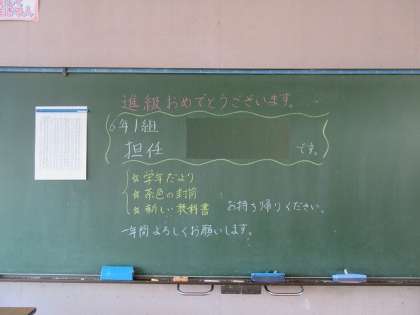 進級おめでとうございます。
6年1組
担任 です。
☆学年だより
☆茶色の封筒
☆新しい教科書 お持ち帰りください。
一年間よろしくお願いします。